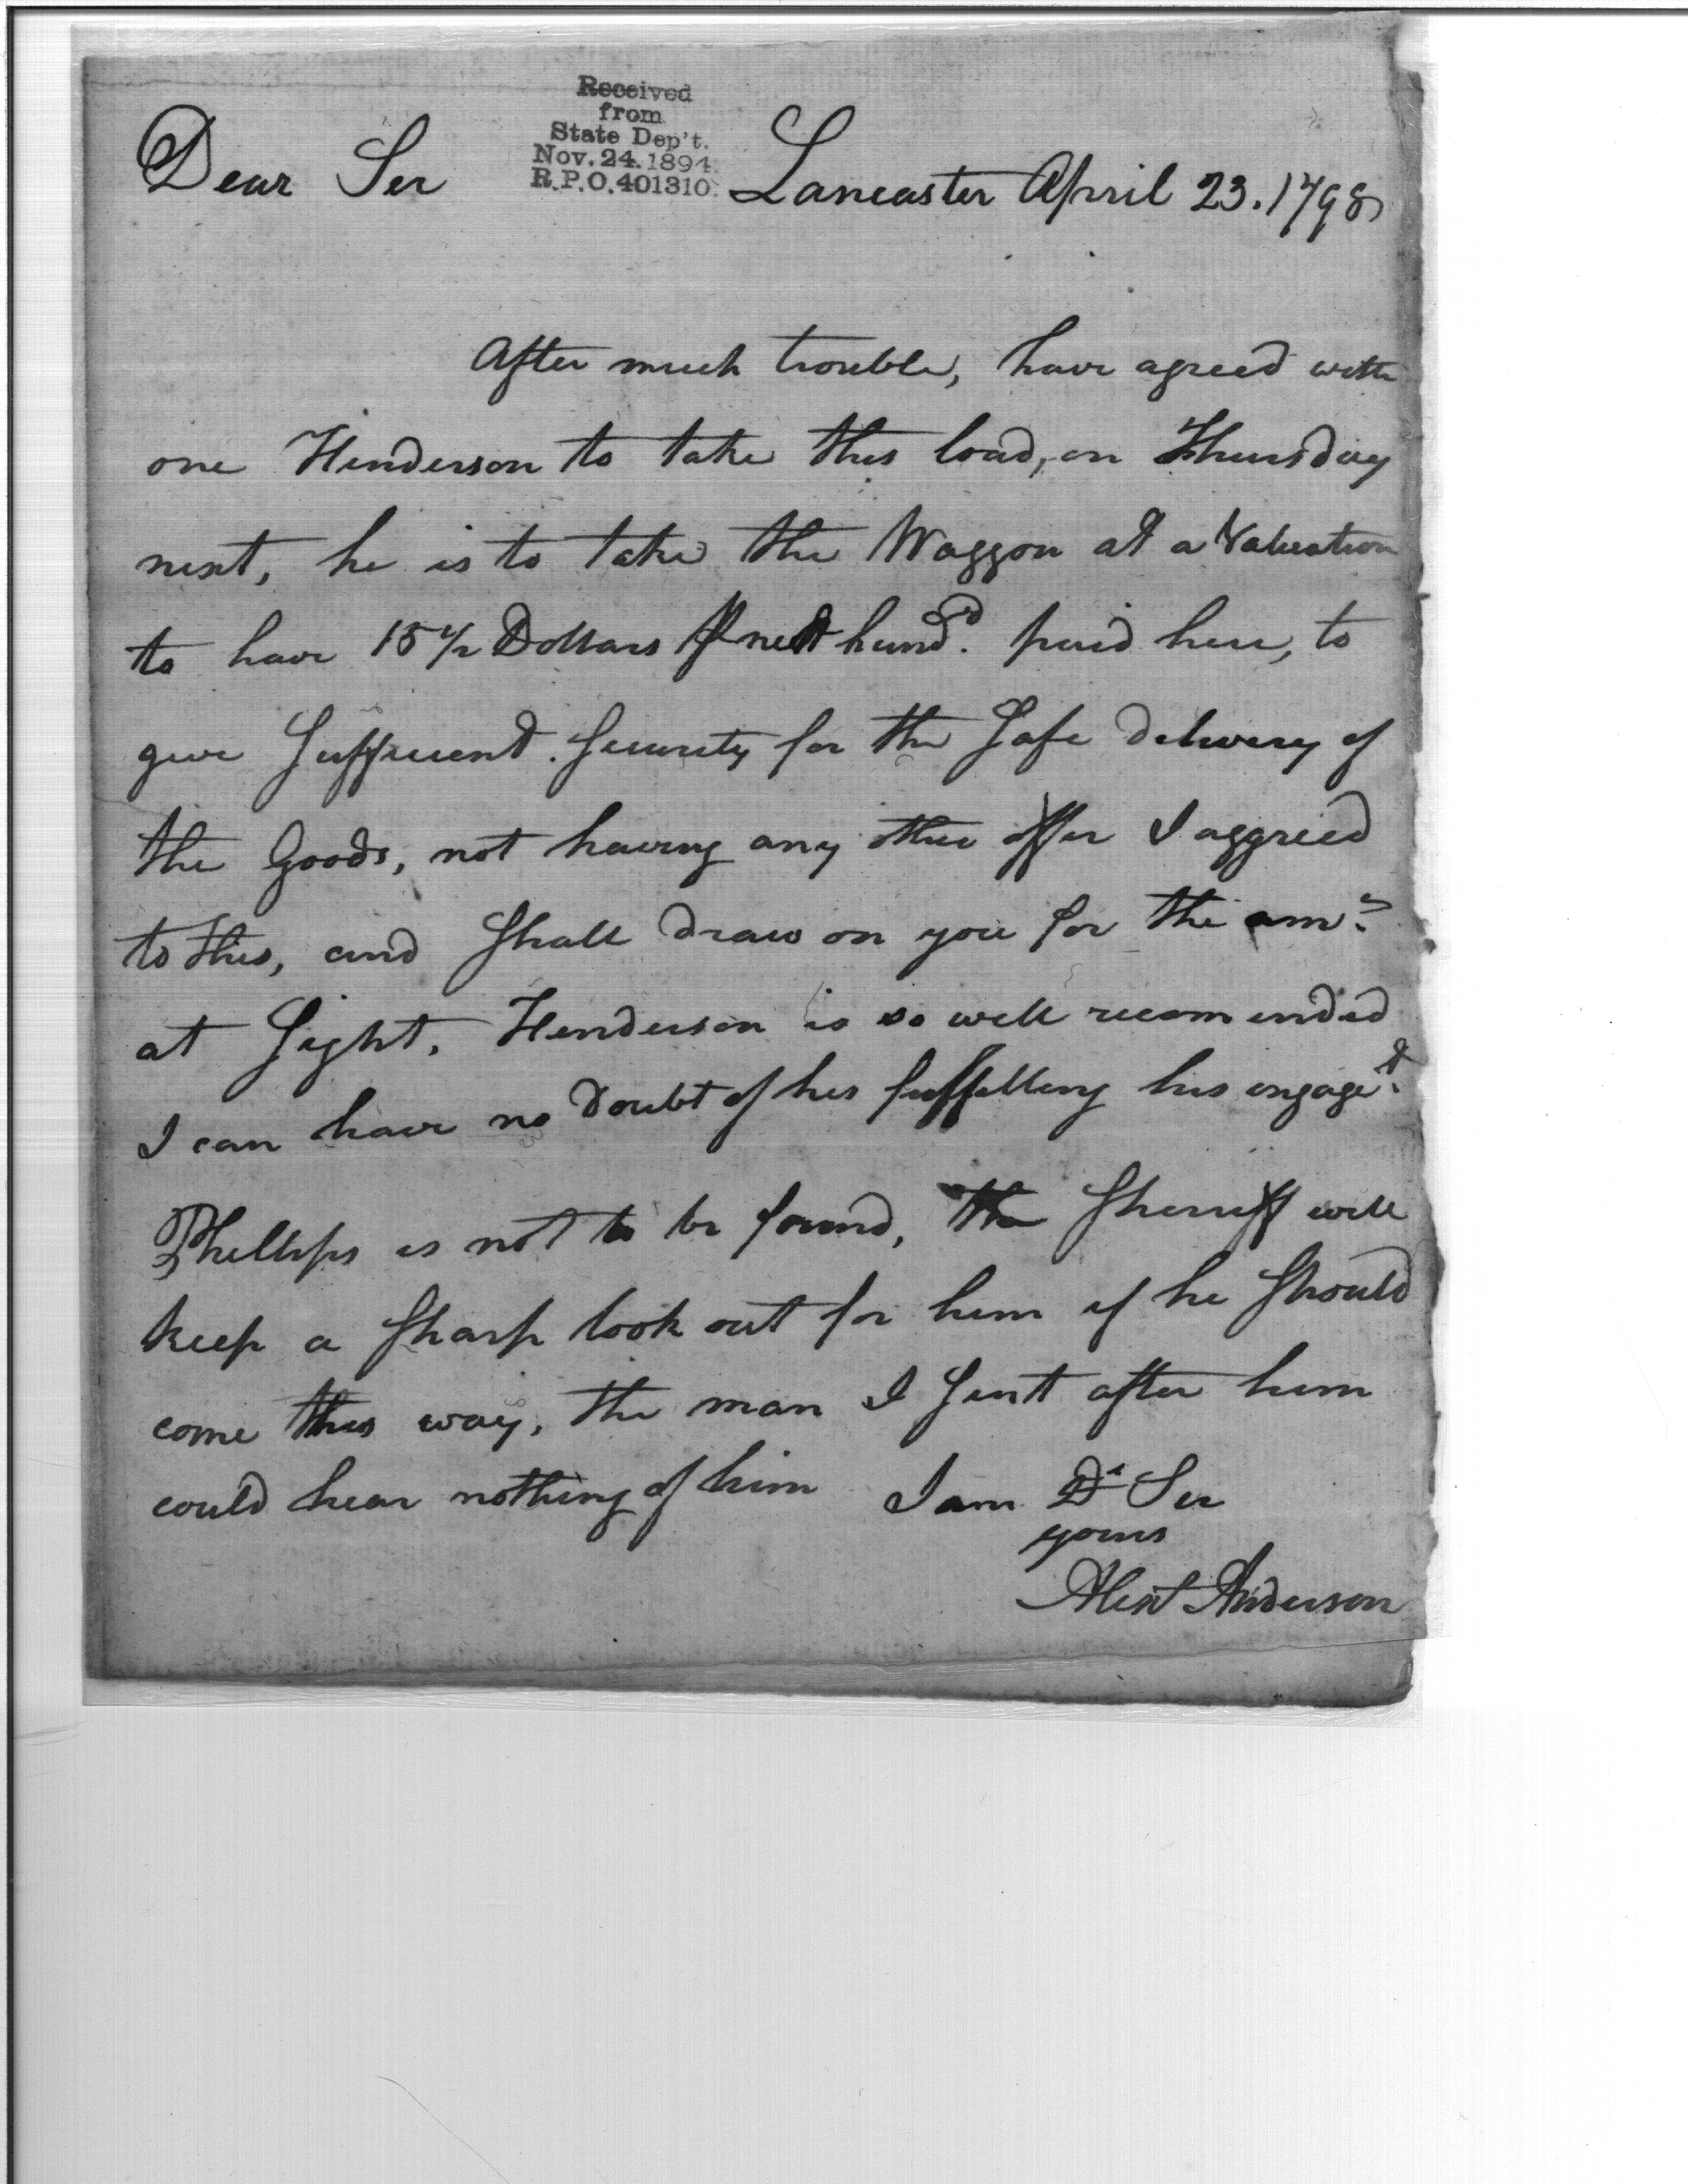 Received
from
State Dep't.
Nov. 24. 1894.
R.P.O. 401310.
Dear Sir
Lancaster April 23. 1798
After much trouble, have agreed with
one Henderson to take this load, on Thursday
next, he is to take the Waggon at a Valuation
to have 15 1/2 Dollars ⅌ nett hund.d paid here, to
give Sufficient Security for the Safe delivery of
the Goods, not having any other offer I aggreed
to this, and Shall draw on you for the am.t
at Sight, Henderson is so well recomended
I can have no Doubt of his fulfilling his engage.t
Phillips is not to be found, the Sherriff will
keep a Sharp look out for him if he Should
come this way, the man I Sent after him
could hear nothing of him I am D.r Sir
yours
Alex.r Anderson